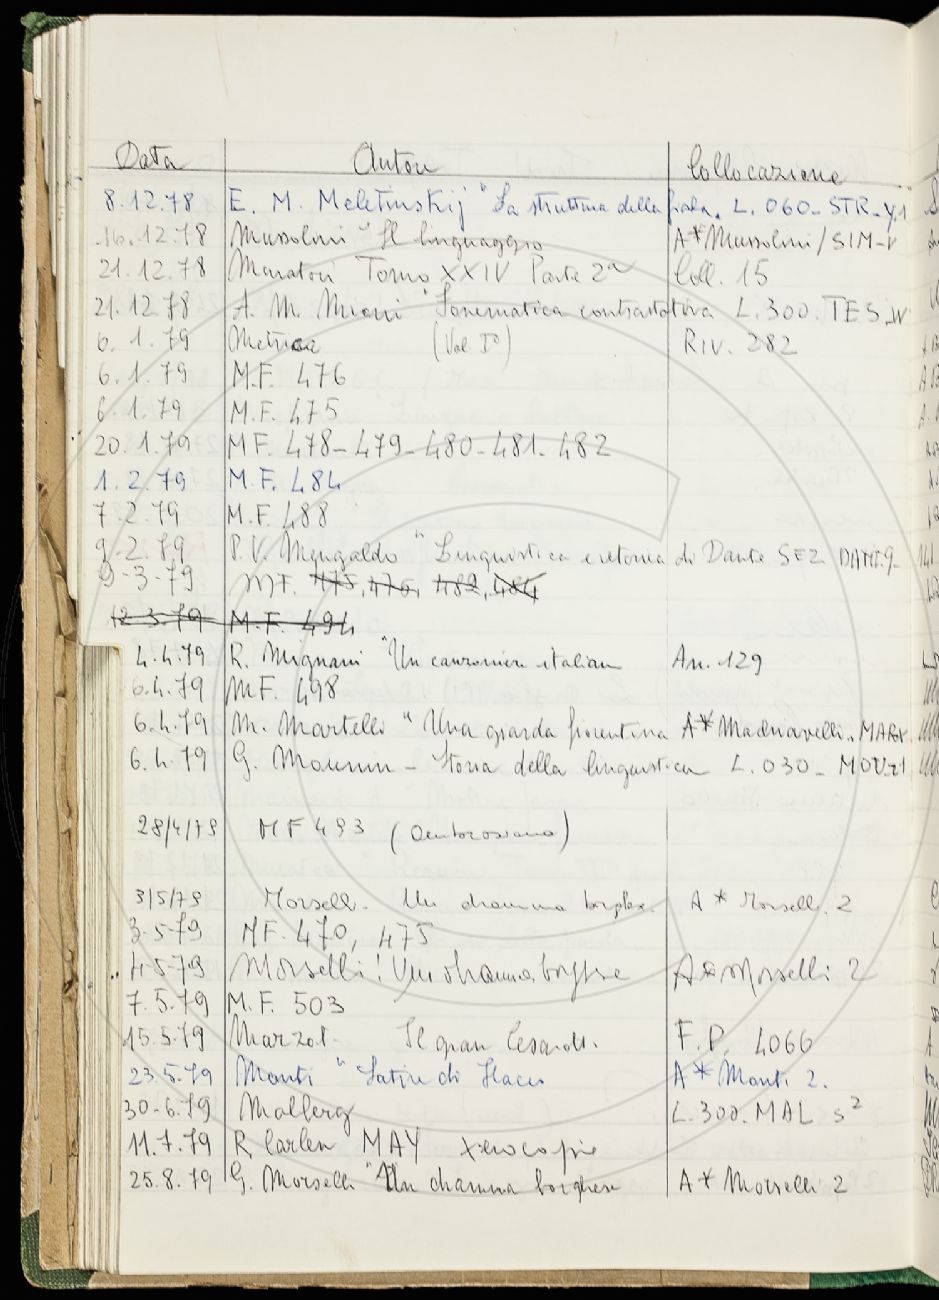 Data Autore Collocazione
8.12.78 E. M. Meletinskij "La struttura della fiaba. L. 060-STR-y.1
16.12.78 Mussolini "Il linguaggio A*Mussolini/SIM-V
21.12.78 Muratori Tomo XXIV Parte 2a Coll. 15
21.12.78 A. M. Mioni "Fonematica contrastativa L.300.TES-IV
6.1.79 Metrica (Vol I°) Riv. 282
6.1.79 M.F. 476
6.1.79 M.F. 475
20.1.79 MF. 478-479-480-481-482
1.2.79 M.F. 484
7.2.79 M.F. 488
9.2.79 P.V. Mengaldo "Linguistica e retorica di Dante SEZ DANT.9-
9-3-79 MF. 475, 476, 482, 484
12.3.79 M.F. 494
4.4.79 R. Mignani "Un canzoniere italiano An. 129
6.4.79 M.F. 498
6.4.79 M. Martelli "Una giarda fiorentina A*Machiavelli.MAR
6.4.79 G. Mounin - Storia della linguistica L.030-MOU
28/4/79 MF 493 (Centorosiana)
3/5/79 Morselli - Un dramma borghese A* Morselli. 2
3.5.79 MF. 470, 475
4-5-79 Morselli! Un dramma borghese A*Morselli 2
7.5.79 M.F. 503
15.5.79 Il gran F.P. 4066
23.5.79 Monti "Satire di A* Monti 2.
30-6.79 Malberg L.300.MAL s²
11.7.79 R. MAY xerocopie
25.8.79 G. Morselli "Un dramma borghese A* Morselli 2